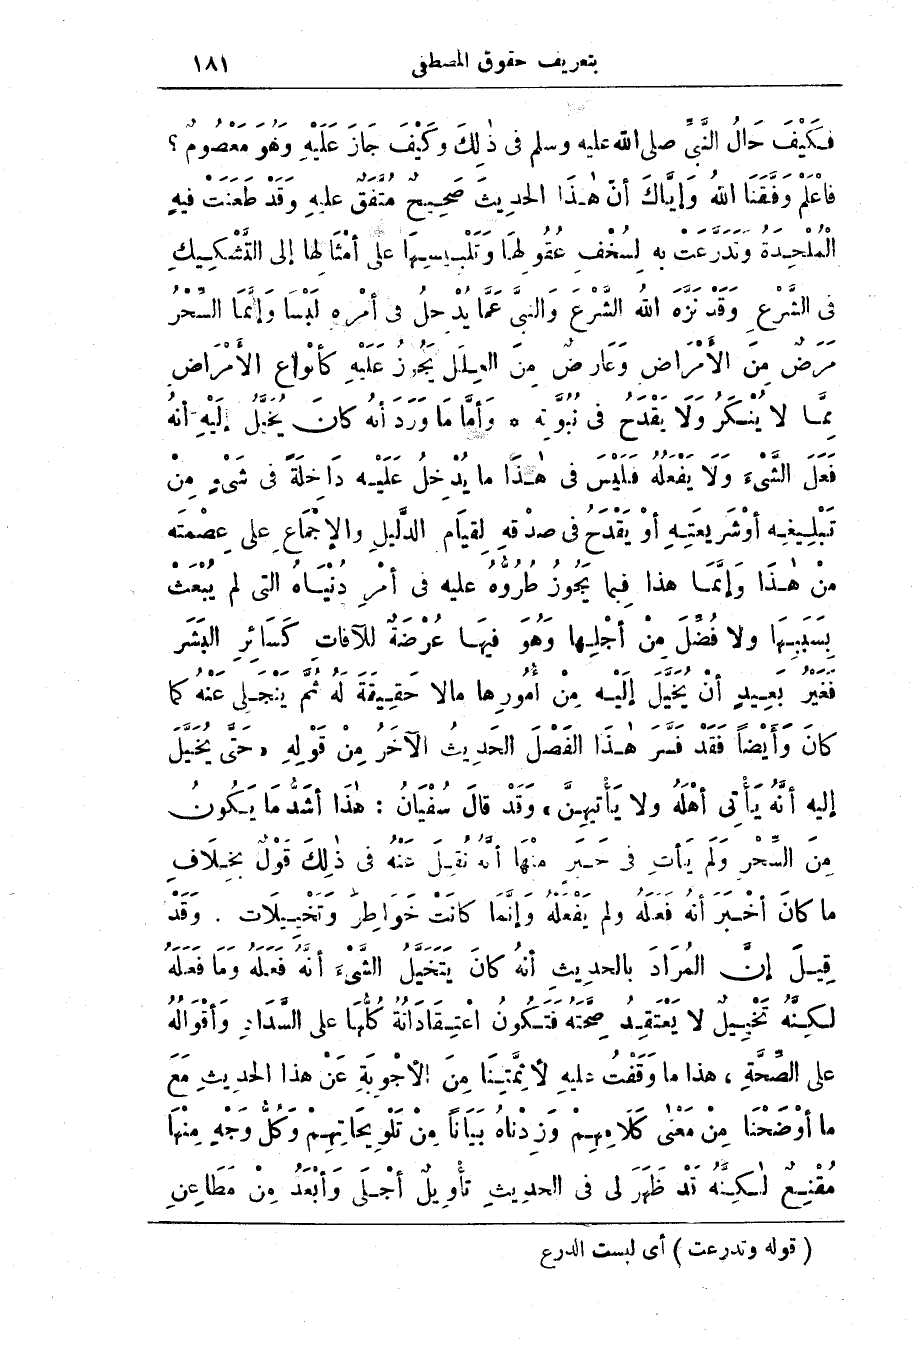 بتعريف حقوق المصطفى ١٨١
فَكَيْفَ حَالُ النَّبِىِّ صلى الله عليه وسلم فى ذٰلِكَ وَكَيْفَ جَازَ عَلَيْهِ وَهُوَ مَعْصُومٌ ؟
فَاعْلَمْ وَفَّقَنَا اللهُ وَإِيَّاكَ أنّ هٰـذَا الحَدِيثَ صَحِيـحٌ مُتَّفَقٌ عليهِ وَقَدْ طَعَنَتْ فيهِ
المُلْحِـدَةُ وَتَدَرَّعَتْ بِهِ لِسُخْفِ عُقُولِهَا وَتَلْبِيسِهَا عَلَى أَمْثَالِهَا إلى التَّشْكِيكِ
فى الشَّرْعِ وَقَدْ نَزَّهَ اللهُ الشَّرْعَ وَالنبىَّ عَمَّا يُدْخِلُ فى أَمْرِهِ لَبْسَا وَإِنَّمَا السِّحْرُ
مَرَضٌ مِنَ الأَمْرَاضِ وَعَارِضٌ مِنَ العِـلَلِ يَجُوزُ عَليْهِ كَأَنْوَاعِ الأَمْرَاضِ
مِمَّـا لا يُنْـكَرُ وَلَا يَقْدَحُ فى نُبُوَّتِهِ * وَأَمَّا مَا وَرَدَ أنه كانَ يُخَيَّلُ إِلَيْهِ أنهُ
فَعَلَ الشَّىْءَ وَلَا يَفْعَلُهُ فَلَيْسَ فى هٰـذَا ما يُدْخِلُ عَلَيْـهِ دَاخِلَةً فى شَىْءٍ مِنْ
تَبْلِـيغِهِ أَوْ شَرِيعَتِـهِ أَوْ يَقْدَحُ فى صِدْقِهِ لِقيَامِ الدَّلِيلِ والإِجْمَاعِ على عِصْمَتِهِ
مِنْ هٰـذَا وَإِنَّمَـا هذا فِيما يَجُوزُ طُرُوُّهُ عليه فى أَمْرِ دُنْيَـاهُ التى لم يُبْعَثْ
بِسَبَبِـهَا ولا فُضِّلَ مِنْ أَجْلِـها وَهُوَ فِيهَـا عُرْضَةٌ للآفات كَسَائِرِ البَشَرِ
فَغَيْرُ بَعِـيدٍ أَنْ يُخَيَّلَ إِلَيْـهِ مِنْ أُمُورِهَا مالا حَقِـيقَةَ لَهُ ثُمَّ يَنْجَـلِى عَنْهُ كما
كانَ وَأَيْضاً فَقَدْ فَسَّرَ هٰـذَا الفَصْلَ الحَدِيثُ الآخَرُ مِنْ قَوْلِهِ « حَتَّى يُخَيَّلَ
إليه أَنَّهُ يَأْتِى أَهْلَهُ ولا يَأْتِيهِنَّ » وَقَدْ قالَ سُفْيَانُ : هٰذَا أَشَدُّ مَا يَـكُونُ
مِنَ السِّحْرِ وَلَم يَأتِ فى خَبَرٍ مِنْهَا أَنَّهُ نُقِـلَ عَنْهُ فى ذٰلِكَ قَوْلٌ بِخِـلَافِ
ما كانَ أَخْبَرَ أنهُ فَعَلَهُ ولم يَفْعَلْهُ وَإِنَّمَا كانَتْ خَوَاطِرَ وَتَخْيِـيلَاتٍ . وَقَدْ
قِيـلَ إِنَّ المُرَادَ بالحَدِيثِ أنهُ كانَ يَتَخَيَّلُ الشَّىْءَ أَنَّهُ فَعَلَهُ وما فَعَلَهُ
لكِـنَّهُ تَخْيِـيلٌ لا يَعْتَقِـدُ صِحَّتَهُ فَتَـكُونُ اعْتِـقَادَاتُهُ كُلُّهَا على السَّدَادِ وَأَقْوَالُهُ
على الصِّحَّةِ ، هذا ما وَقَفْتُ عليهِ لأَئِمَّتِـنَا مِنَ الأَجْوِبَةِ عَنْ هذا الحَدِيثِ مَعَ
ما أَوْضَحْنَا مِنْ مَعْنَى كَلَامِهِـمْ وَزِدْنَاهُ بَيَاناً مِنْ تَلْوِيحَاتِهِـمْ وَكُلُّ وَجْهٍ مِنْهَا
مُقْنِـعٌ لٰـكِنَّهُ قَدْ ظَهَرَ لِى فى الحَدِيثِ تَأْوِيلٌ أَجْـلَى وَأَبْعَدُ مِنْ مَطَاعِنِ
( قوله وتدرعت ) أى لبست الدرع